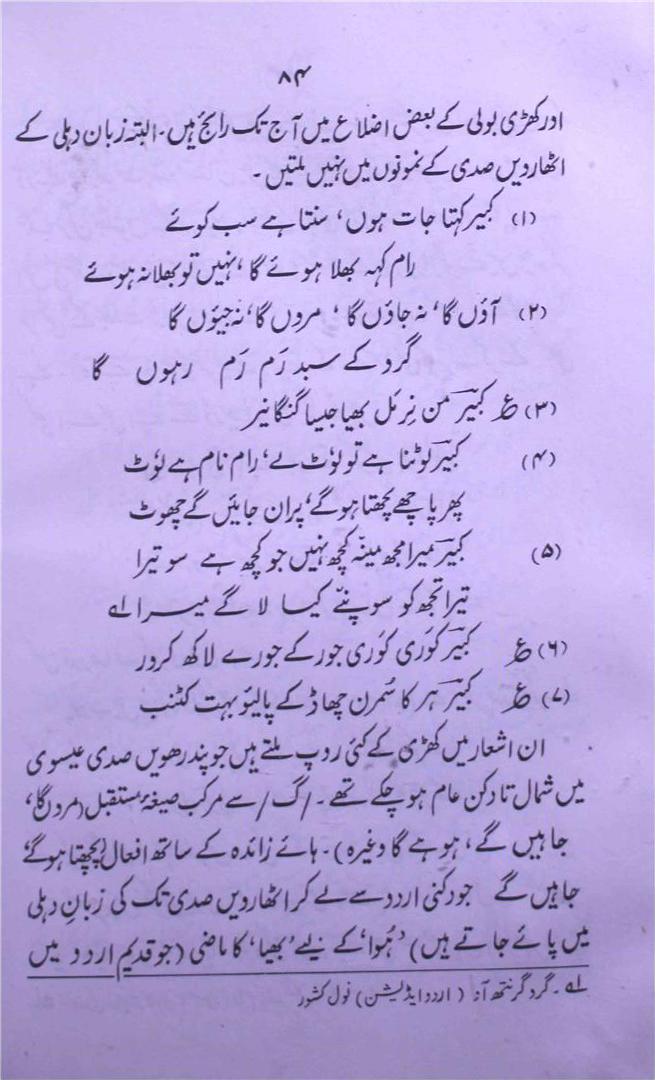 ۸۴
اور کھڑی بولی کے بعض اضلاع میں آج تک رائج ہیں۔ البتہ زبان دہلی کے
اٹھارویں صدی کے نمونوں میں نہیں ملتیں۔
(۱) کبیر کہتا جات ہوں، سنتا ہے سب کوئے
رام کہہ بھلا ہوئے گا، نہیں تو بھلا نہ ہوئے
(۲) آؤں گا، نہ جاؤں گا، مروں گا، نہ جیوں گا
گرو کے سبد رَم رَم رہوں گا
(۳) ؏ کبیر من نِرمَل بھیا جیسا گنگا نیر
(۴) کبیر لوٹنا ہے تو لُوٹ لے، رام نام ہے لُوٹ
پھر پاچھے پچھتا ہوگے، پران جائیں گے چھوٹ
(۵) کبیر میرا مجھ مینہ کچھ نہیں جو کچھ ہے سو تیرا
تیرا تجھ کو سونپتے کیا لاگے میرا ؎۱
(۶) ؏ کبیر کوَری کوَری جور کے جورے لاکھ کرور
(۷) ؏ کبیر ہر کا سُمرن چھاڈ کے پالیؤ بہت کٹنب
ان اشعار میں کھڑی کے کئی روپ ملتے ہیں جو پندرھویں صدی عیسوی
میں شمال تا دکن عام ہوچکے تھے۔ /گ/ سے مرکب صیغۂ مستقبل (مروں گا،
جاہیں گے، ہوہے گا وغیرہ)۔ ہائے زائدہ کے ساتھ افعال (پچھتا ہوگے
جاہیں گے جو دکنی اردو سے لے کر اٹھارویں صدی تک کی زبانِ دہلی
میں پائے جاتے ہیں) 'ہُوا' کے لیے 'بھیا' کا ماضی (جو قدیم اردو میں
؎۱۔ گرو گرنتھ آنا (اردو ایڈیشن) نول کشور